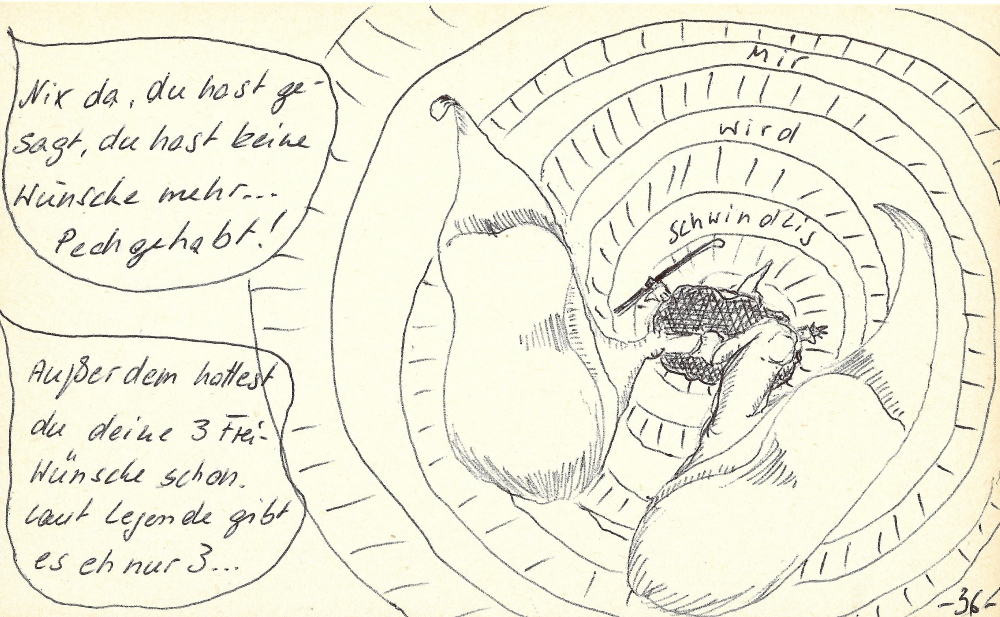 Nix da, du hast ge-
sagt, du hast keine
Wünsche mehr...
Pech gehabt!
Außerdem hattest
du deine 3 Frei-
Wünsche schon.
Laut Legende gibt
es eh nur 3...
Mir
wird
schwindlig
-36-